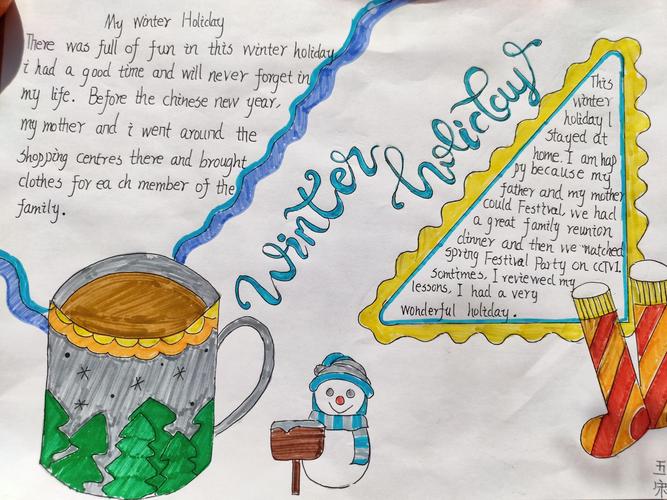 My Winter Holiday
There was full of fun in this winter holiday
i had a good time and will never forget in
my life. Before the chinese new year,
my mother and i went around the
shopping centres there and brought
clothes for ea ch member of the
family.
Winter holiday
This
winter
holiday I
stayed at
home. I am hap
py because my
father and my mother
could Festival, we had
a great family reunion
dinner and then we watched
spring Festival Party on CCTV1.
somtimes, I reviewed my
lessons, I had a very
wonderful holiday.
五
宋